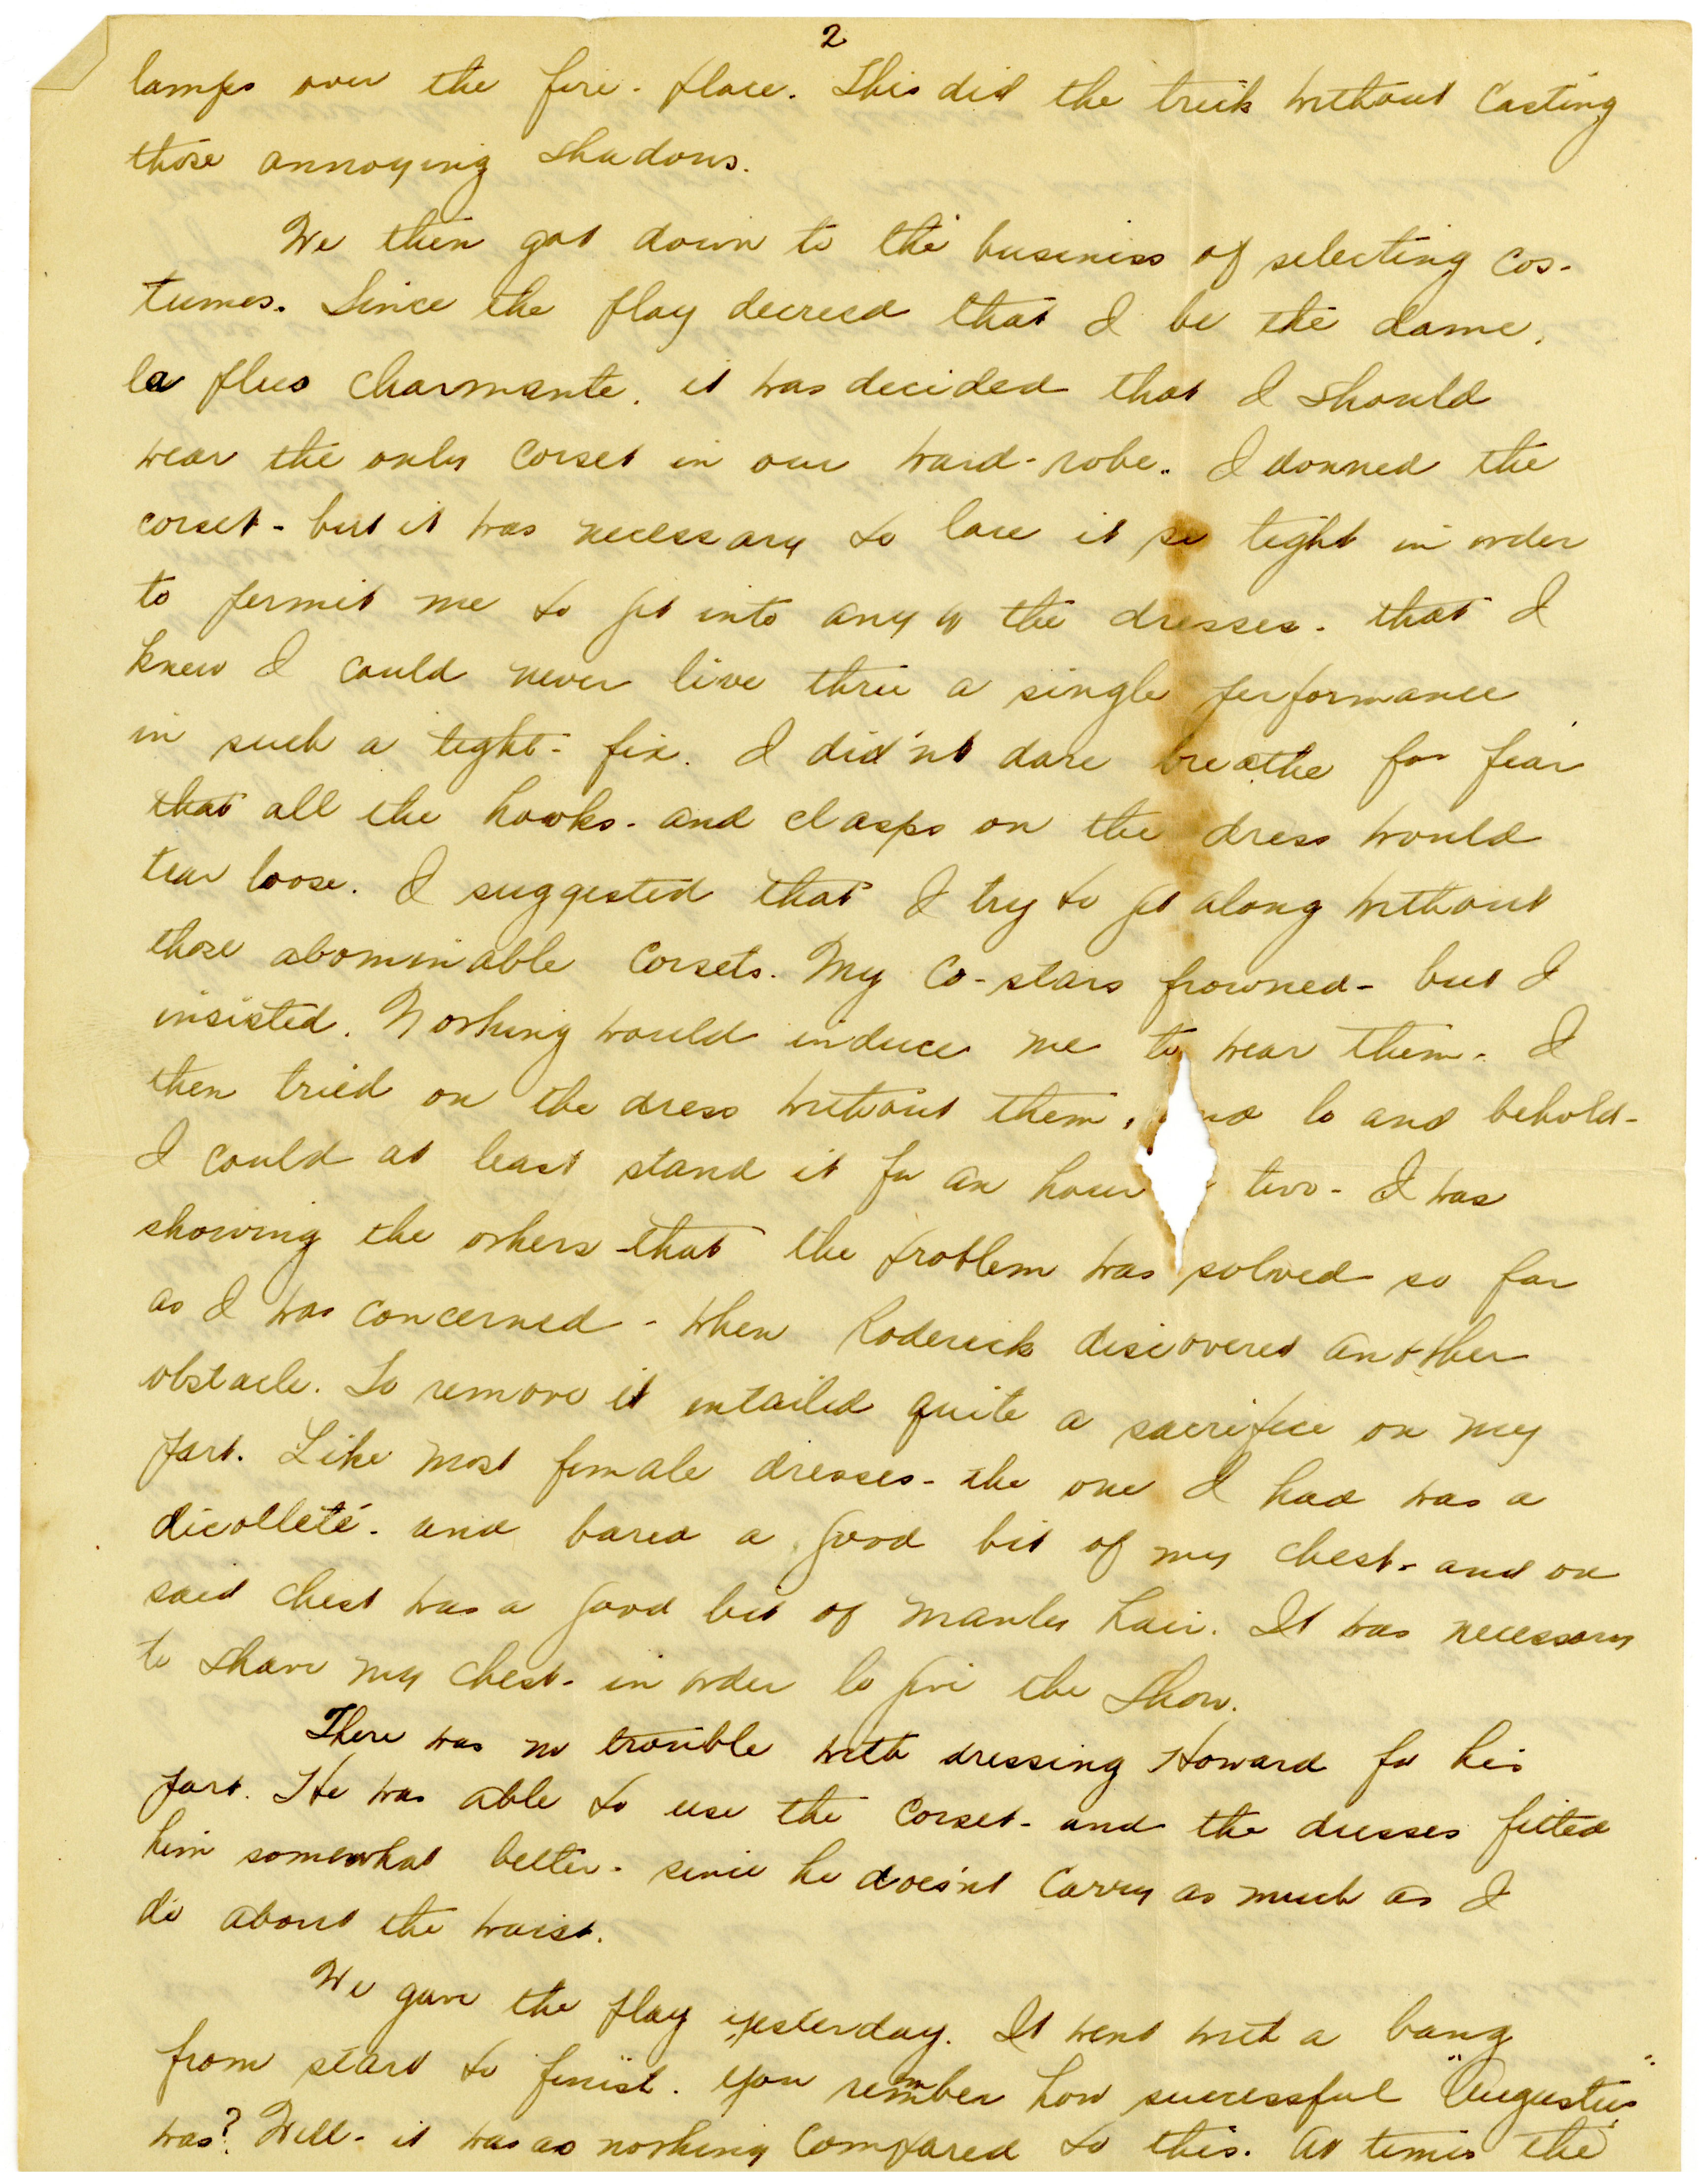 2
lamps over the fire-place. This did the trick without casting
those annoying shadows.
We then got down to the business of selecting cos-
tumes. Since the play decreed that I be the dame,
la plus charmante, it was decided that I should
wear the only corset in our ward-robe. I donned the
corset - but it was necessary to lace it so tight in order
to permit me to get into any of the dresses - that I
knew I could never live thru a single performance
in such a tight-fix. I did'nt dare breathe for fear
that all the hooks - and clasps on the dress would
tear loose. I suggested that I try to get along without
those abominable corsets. My co-stars frowned - but I
insisted. Nothing would induce me to wear them. I
then tried on the dress without them, and lo and behold -
I could at least stand it for an hour two - I was
showing the others that the problem was solved so far
as I was concerned - when Roderick discovered another
obstacle. To remove it entailed quite a sacrifice on my
part. Like most female dresses - the one I had was a
dicolleté - and bared a good bit of my chest - and on
said chest was a good bit of manly hair. It was necessary
to shave my chest - in order to give the show.
There was no trouble with dressing Howard for his
part. He was able to use the corset - and the dresses fitted
him somewhat better - since he does'nt carry as much as I
do about the waist.
We gave the play yesterday. It went with a bang
from start to finish. You remmber how successful "Augustus"
was? Well - it was as nothing compared to this. At times the